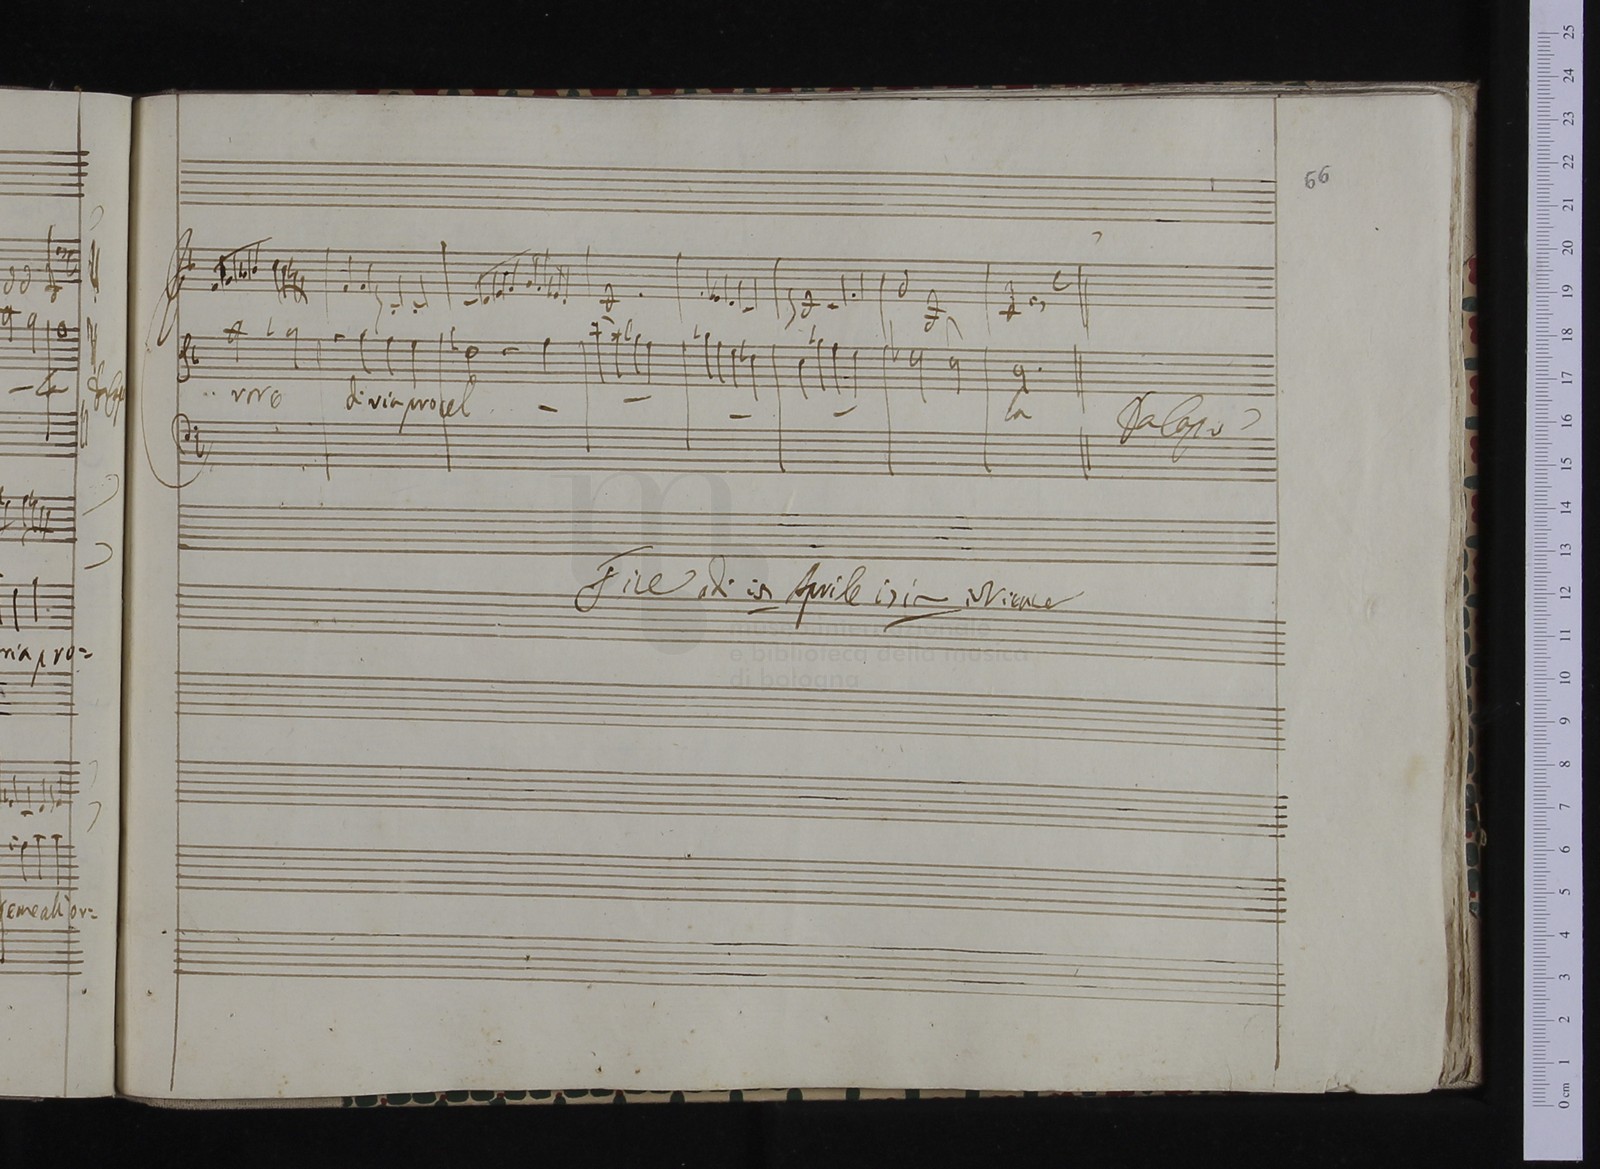 66
Da Capo
.. roro di ria procel - - - - la Da Capo
ria pro=
Fine adi Aprile in Vienna
museo internazionale
e biblioteca della musica
di bologna
teme ali or=
0 cm 1 2 3 4 5 6 7 8 9 10 11 12 13 14 15 16 17 18 19 20 21 22 23 24 25